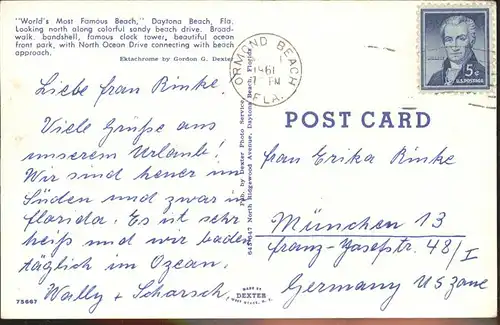 "World's Most Famous Beach," Daytona Beach, Fla.
Looking north along colorful sandy beach drive. Broad-
walk, bandshell, famous clock tower, beautiful ocean
front park, with North Ocean Drive connecting with beach
approach.
Ektachrome by Gordon G. Dexter
Liebe Frau Rinke.
Viele Grüße aus
unserem Urlaub!
Wir sind heuer im
Süden und zwar in
Florida. Es ist sehr
heiß und wir baden
täglich im Ozean.
Wally + Schorsch
75667
Pub. by Dexter Photo Service,
North Ridgewood Avenue, Daytona Beach, Florida
MADE BY
DEXTER
WEST NYACK, N. Y.
ORMOND BEACH
1961
PM
FLA.
5¢
U.S. POSTAGE
POST CARD
Frau Erika Rinke
München 13
Franz-Josefstr. 48/I
Germany US Zone